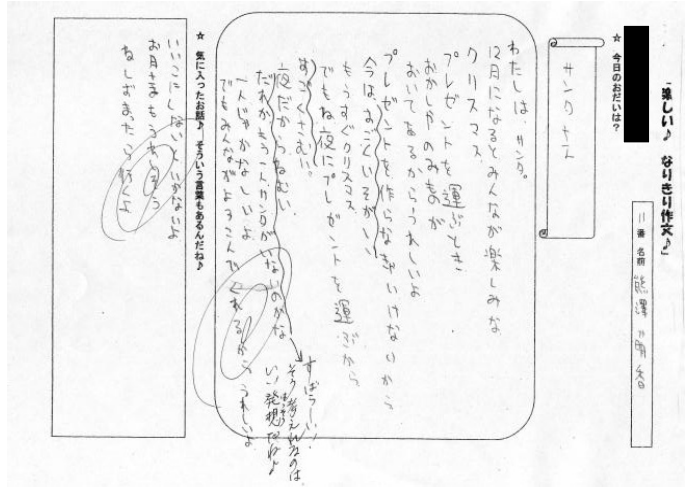 「楽しい♪ なりきり作文♪」
11番 名前 熊澤 明香
☆ 今日のおだいは?
サンタクロース
わたしは、サンタ。
12月になるとみんなが楽しみな
クリスマス、
プレゼントを運ぶとき、
おかしやのみものが
おいてあるからうれしいよ
プレゼントを作らなきゃいけないから
今は、すごくいそがしい
もうすぐクリスマス
でもね夜にプレゼントを運ぶから
すごくさむい。
夜だからねむい、
だれかもう一人サンタがいないのかな
一人じゃかなしいよ
でもみんながよろこんでくれるからうれしいよ
すばらしい!
そう考えれるのは、
いい発想だねよ
☆ 気に入ったお話♪ そういう言葉もあるんだね♪
いいこにしないといかないよ
お月さまもうねむそう
ねしずまったら行くよ